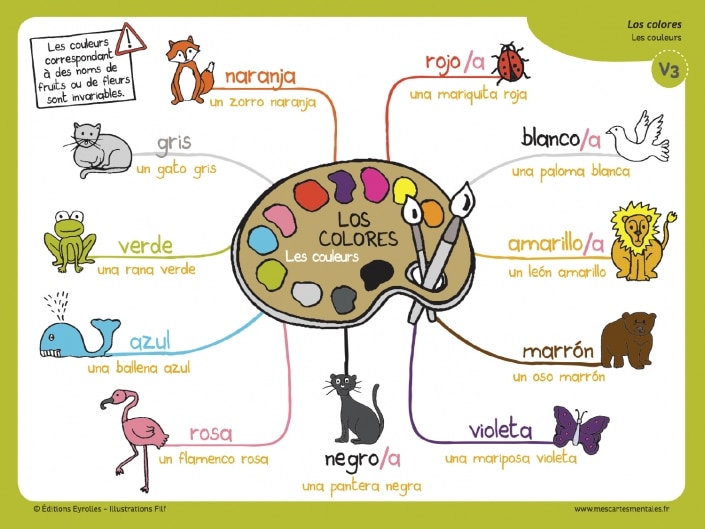 Los colores
Les couleurs
V3
Les couleurs
correspondant
à des noms de
fruits ou de fleurs
sont invariables.
naranja
un zorro naranja
rojo/a
una mariquita roja
gris
un gato gris
blanco/a
una paloma blanca
LOS
COLORES
Les couleurs
verde
una rana verde
amarillo/a
un león amarillo
azul
una ballena azul
marrón
un oso marrón
rosa
un flamenco rosa
negro/a
una pantera negra
violeta
una mariposa violeta
© Éditions Eyrolles – Illustrations Filf
www.mescartesmentales.fr